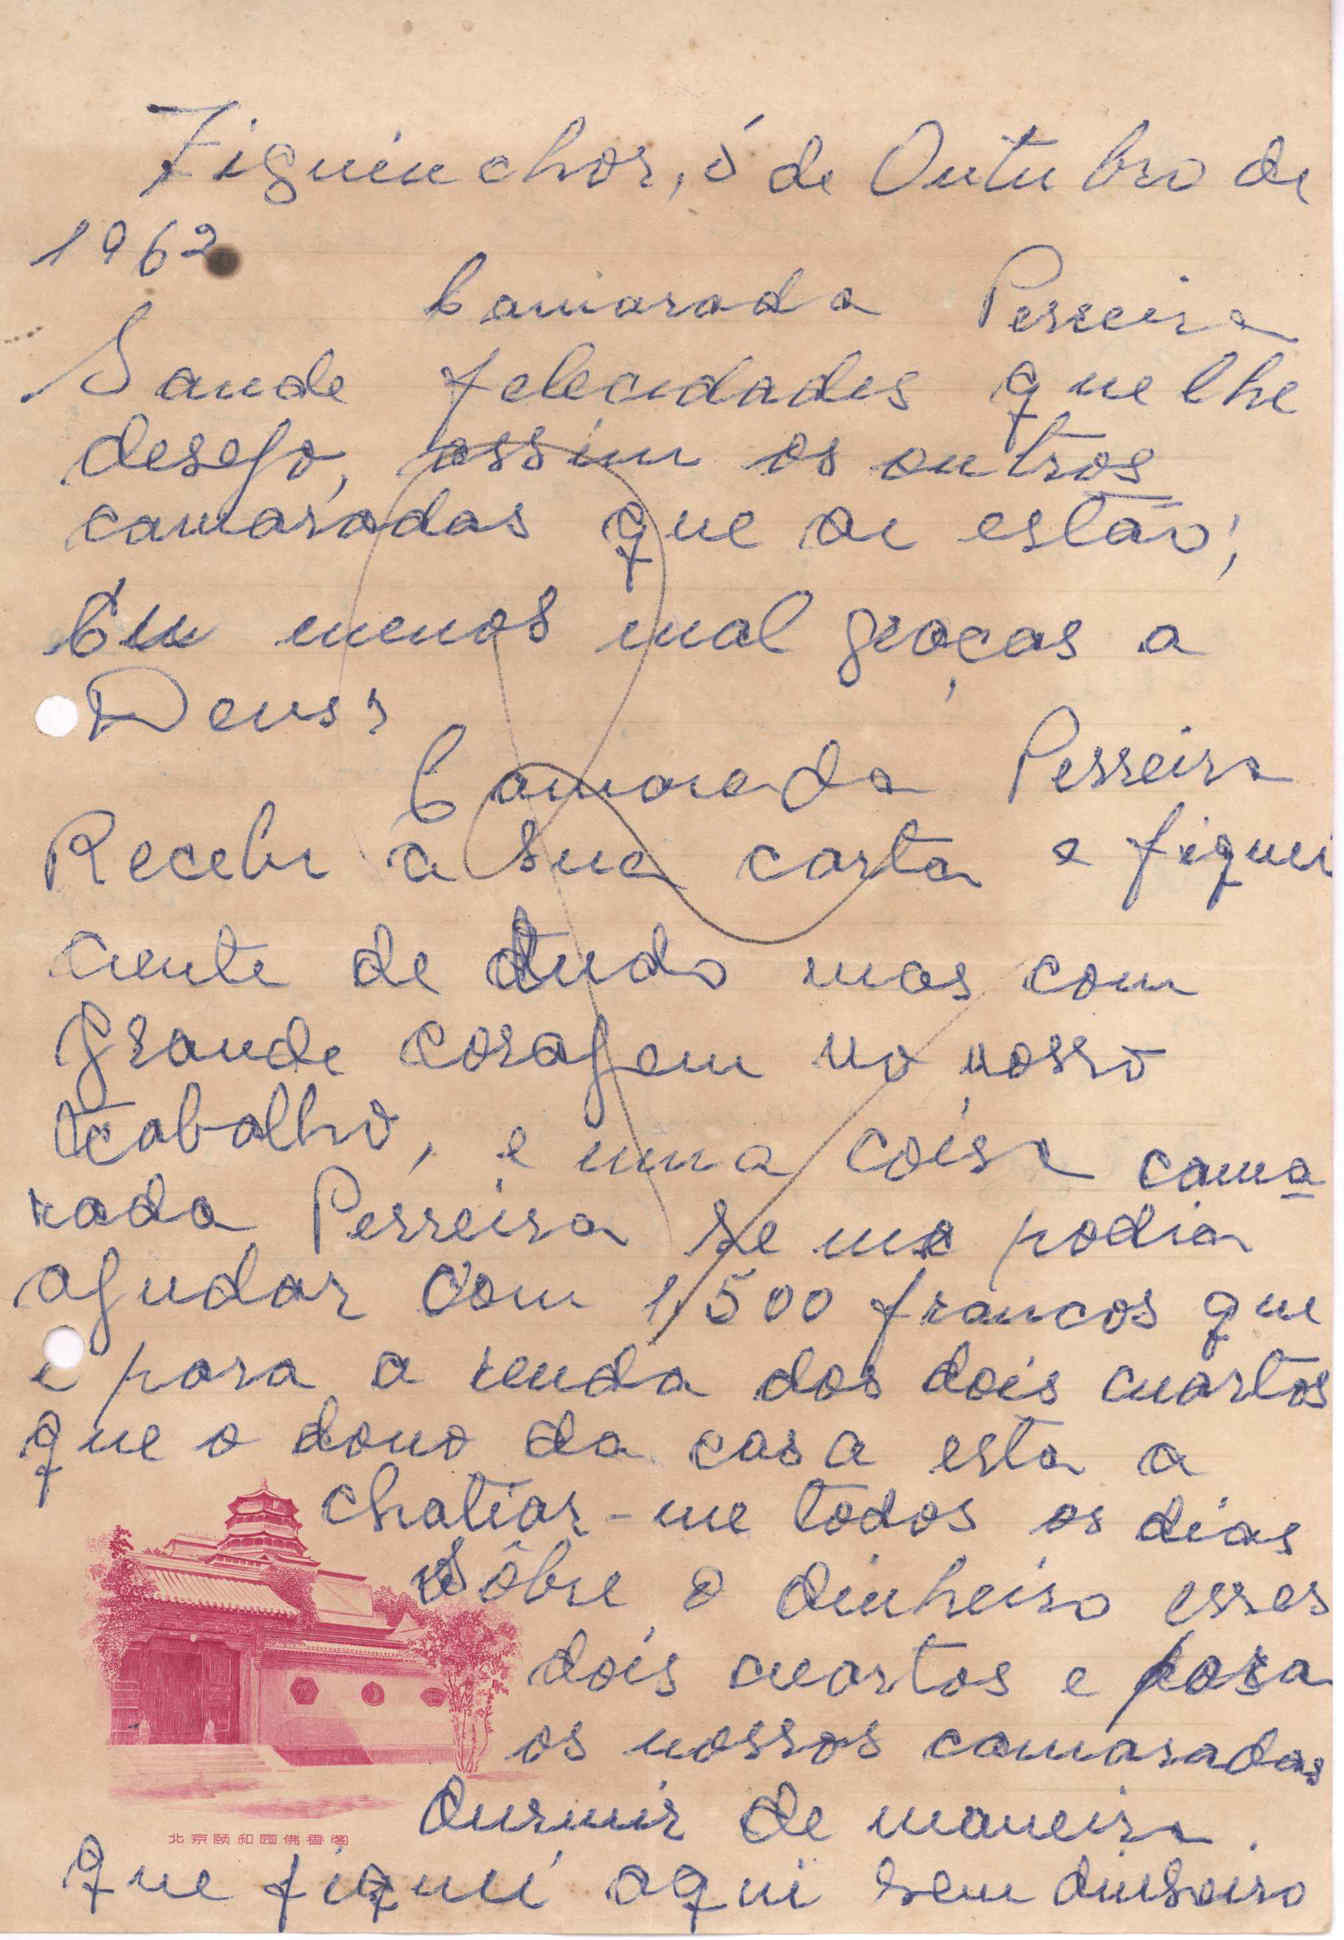 Ziguinchor, de Outubro de
1962
Camarada Perreira
Saude felecidades que lhe
desejo, assim os outros
camaradas que ai estão;
Eu menos mal graças a
Deus,
Camarada Perreira
Recebi a sua carta e fiquei
ciente de tudo mas com
grande coragem no nosso
trabalho, e uma coisa cama
rada Perreira se me podia
ajudar com 1,500 francos que
e para a renda dos dois cuartos
que o dono da casa esta a
chatiar-me todos os dias
sôbre o dinheiro esses
dois cuartos e para
os nossos camaradas
durmir de maneira
que fiquei aqui sem dinheiro
北京颐和园佛香阁